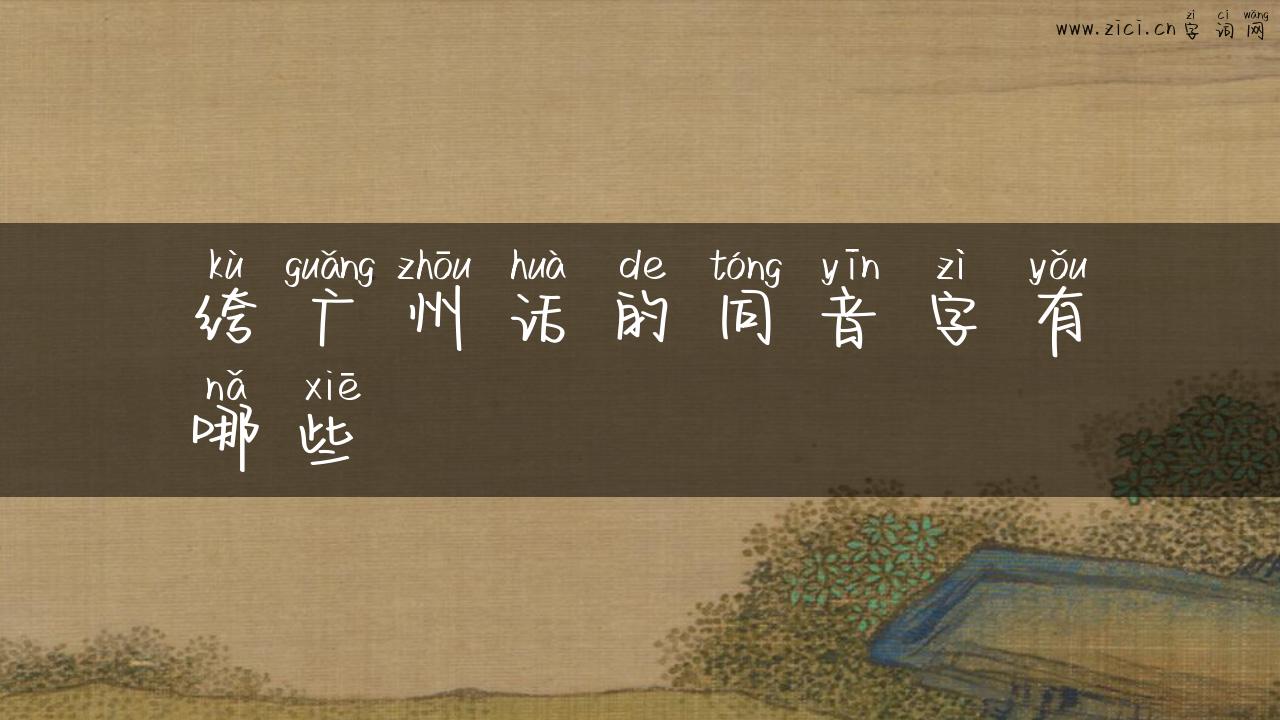 zì cí wǎng
www.zici.cn 字词网
kù guǎng zhōu huà de tóng yīn zì yǒu
绔广州话的同音字有
nǎ xiē
哪些